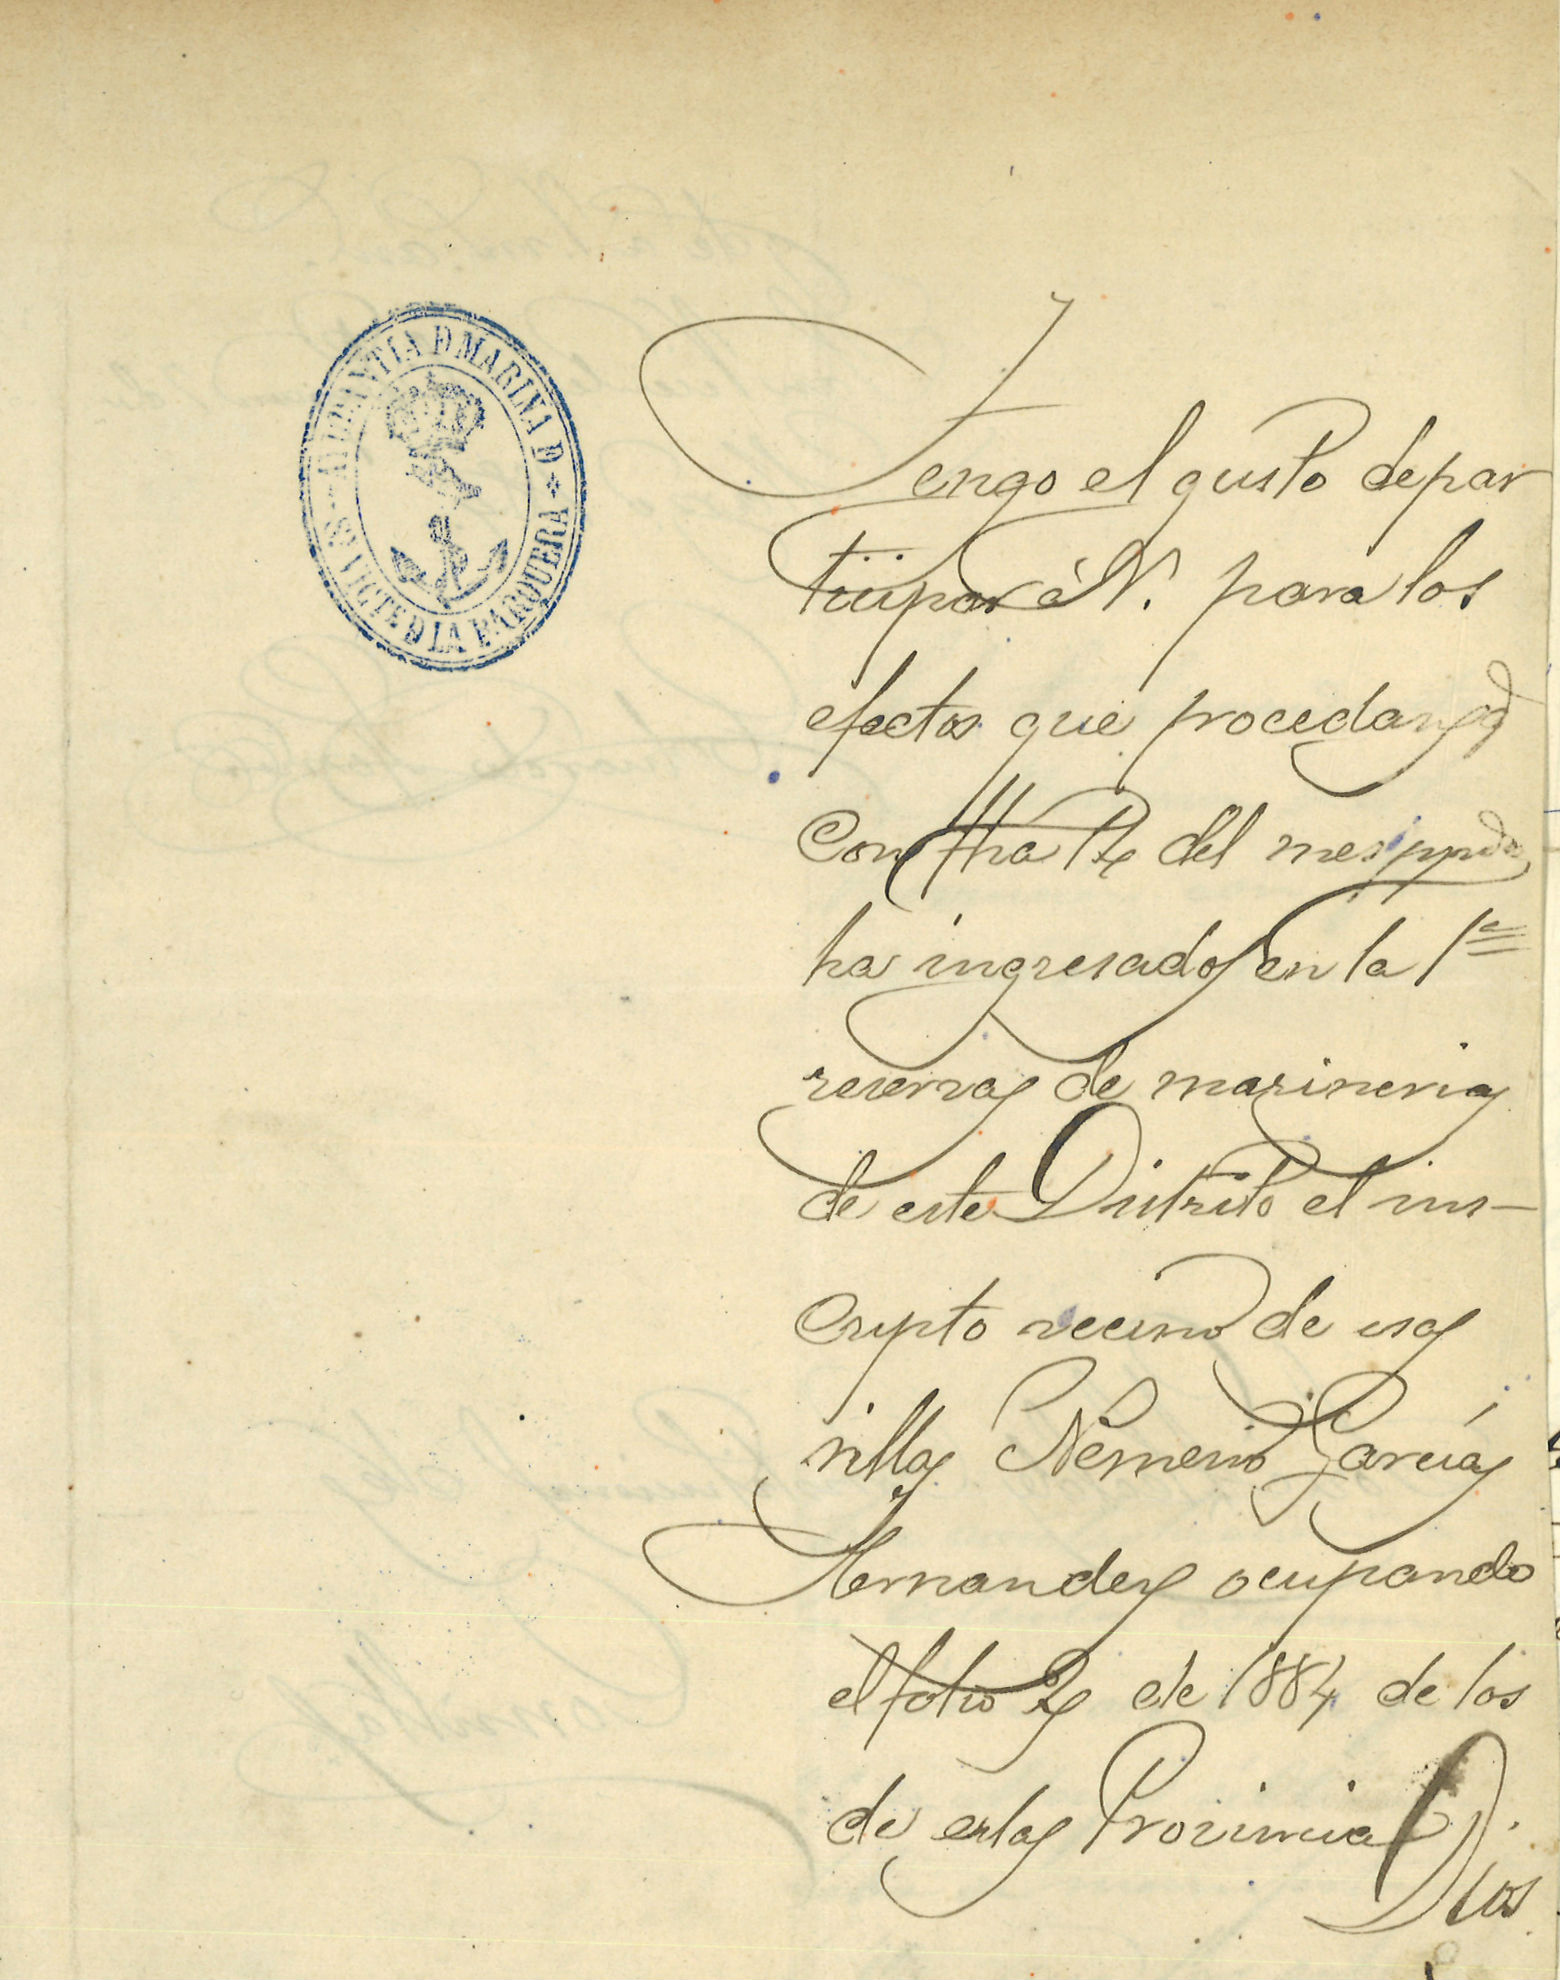 AYUDANTIA D MARINA D
Sn VICTE D LA BARQUERA
Tengo el gusto de par
ticipar á V. para los
efectos que procedan, qe
con fha 1º del mes ppdo
ha ingresado en la 1ª
reserva de marineria
de este Distrito el ins-
cripto vecino de esa
villa Nemesio García
Hernandez ocupando
el folio 2 de 1884 de los
de esta Provincia
Dios